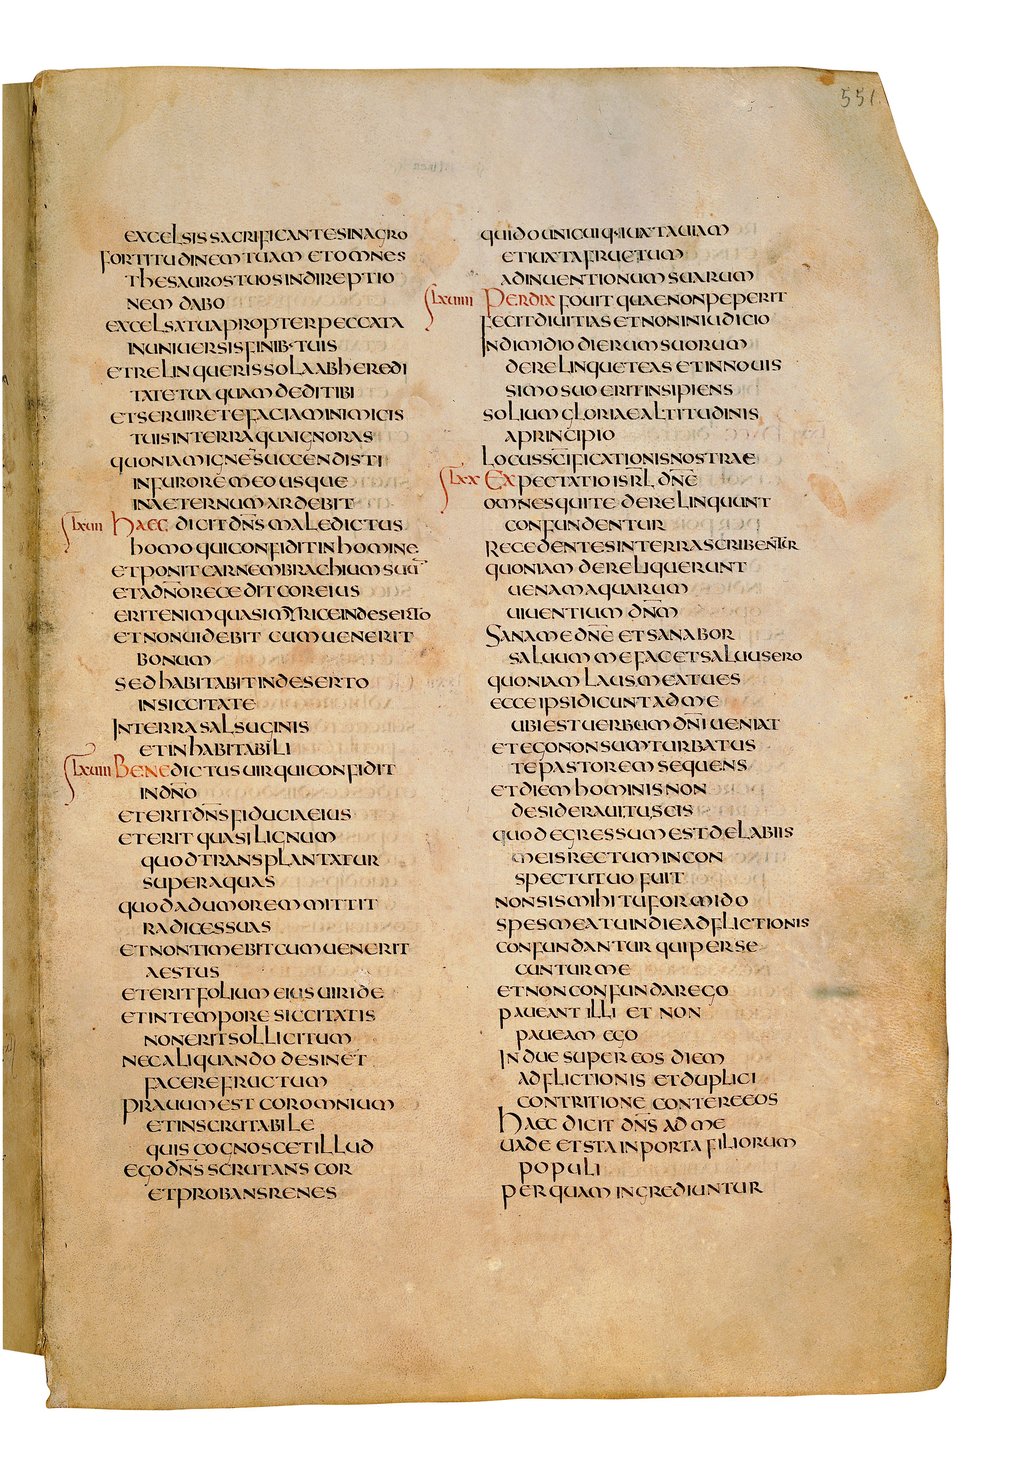 551
EXCELSIS SACRIFICANTES IN AGRO
FORTITUDINEM TUAM ET OMNES
THESAUROS TUOS IN DIREPTIO
NEM DABO
EXCELSA TUA PROPTER PECCATA
IN UNIUERSIS FINIB· TUIS
ET RELINQUERIS SOLA AB HEREDI
TATE TUA QUAM DEDI TIBI
ET SERUIRE TE FACIAM INIMICIS
TUIS IN TERRA QUA IGNORAS
QUONIAM IGNE SUCCENDISTI
IN FURORE MEO USQUE
IN AETERNUM ARDEBIT
LXVII HAEC DICIT DN̄S MALEDICTUS
HOMO QUI CONFIDIT IN HOMINE
ET PONIT CARNEM BRACHIUM SUŪ
ET A DN̄O RECEDIT COR EIUS
ERIT ENIM QUASI MYRICE IN DESERTO
ET NON UIDEBIT CUM UENERIT
BONUM
SED HABITABIT IN DESERTO
IN SICCITATE
IN TERRA SALSUGINIS
ET INHABITABILI
LXVIII BENEDICTUS UIR QUI CONFIDIT
IN DN̄O
ET ERIT DN̄S FIDUCIA EIUS
ET ERIT QUASI LIGNUM
QUOD TRANSPLANTATUR
SUPER AQUAS
QUOD AD UMOREM MITTIT
RADICES SUAS
ET NON TIMEBIT CUM UENERIT
AESTUS
ET ERIT FOLIUM EIUS UIRIDE
ET IN TEMPORE SICCITATIS
NON ERIT SOLLICITUM
NEC ALIQUANDO DESINET
FACERE FRUCTUM
PRAUUM EST COR OMNIUM
ET INSCRUTABILE
QUIS COGNOSCET ILLUD
EGO DN̄S SCRUTANS COR
ET PROBANS RENES
QUI DO UNICUIQ· IUXTA UIAM
ET IUXTA FRUCTUM
ADINUENTIONUM SUARUM
LXVIIII PERDIX FOUIT QUAE NON PEPERIT
FECIT DIUITIAS ET NON IN IUDICIO
IN DIMIDIO DIERUM SUORUM
DERELINQUET EAS ET IN NOUIS
SIMO SUO ERIT INSIPIENS
SOLIUM GLORIAE ALTITUDINIS
A PRINCIPIO
LOCUS SC̄IFICATIONIS NOSTRAE
LXX EXPECTATIO ISRL̄ DN̄E
OMNES QUI TE DERELINQUUNT
CONFUNDENTUR
RECEDENTES IN TERRA SCRIBENTUR
QUONIAM DERELIQUERUNT
UENAM AQUARUM
UIUENTIUM DN̄M
SANA ME DN̄E ET SANABOR
SALUUM ME FAC ET SALUUS ERO
QUONIAM LAUS MEA TU ES
ECCE IPSI DICUNT AD ME
UBI EST UERBUM DN̄I UENIAT
ET EGO NON SUM TURBATUS
TE PASTOREM SEQUENS
ET DIEM HOMINIS NON
DESIDERAUI TU SCIS
QUOD EGRESSUM EST DE LABIIS
MEIS RECTUM IN CON
SPECTU TUO FUIT
NON SIS MIHI TU FORMIDO
SPES MEA TU IN DIE ADFLICTIONIS
CONFUNDANTUR QUI PERSE
CUNTUR ME
ET NON CONFUNDAR EGO
PAUEANT ILLI ET NON
PAUEAM EGO
INDUC SUPER EOS DIEM
ADFLICTIONIS ET DUPLICI
CONTRITIONE CONTERE EOS
HAEC DICIT DN̄S AD ME
UADE ET STA IN PORTA FILIORUM
POPULI
PER QUAM INGREDIUNTUR